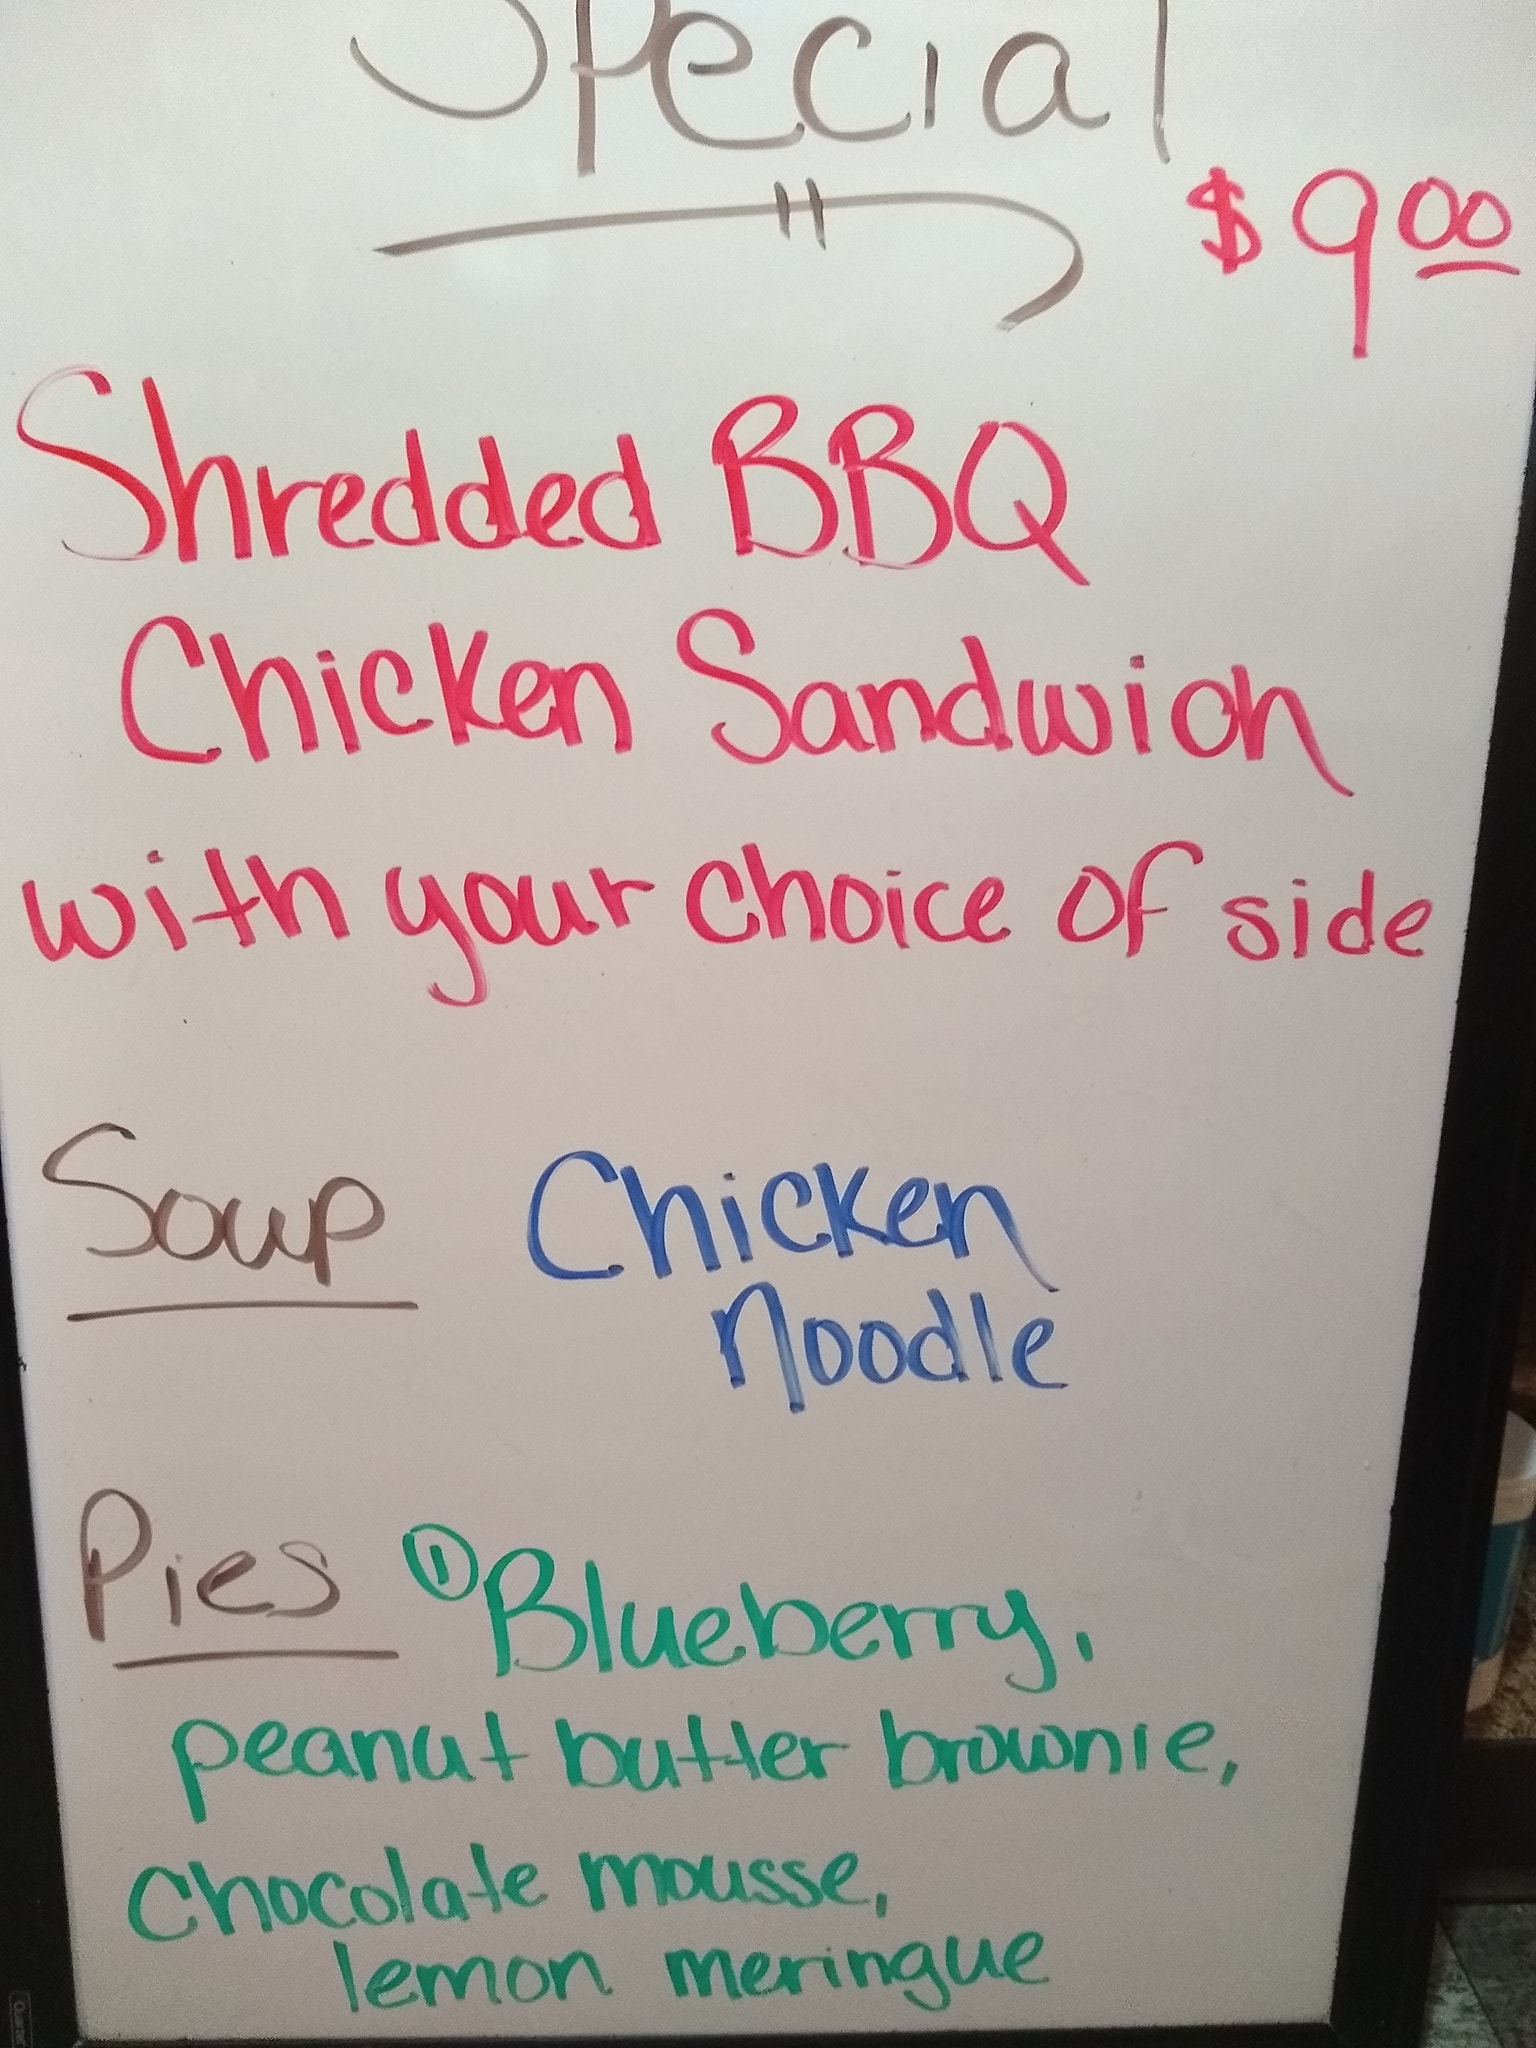 Special
$9.00
Shredded BBQ
Chicken Sandwich
with your choice of side
Soup Chicken
noodle
Pies ① Blueberry,
peanut butter brownie,
Chocolate mousse,
lemon meringue